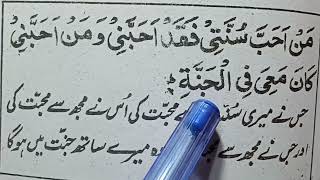 مَنْ اَحَبَّ سُنَّتِیْ فَقَدْ اَحَبَّنِیْ وَ مَنْ اَحَبَّنِیْ
کَانَ مَعِیَ فِی الْجَنَّةِ
جس نے میری محبت کی اُس نے مجھ سے محبت کی
اور جس نے مجھ سے میرے ساتھ جنّت میں ہوگا